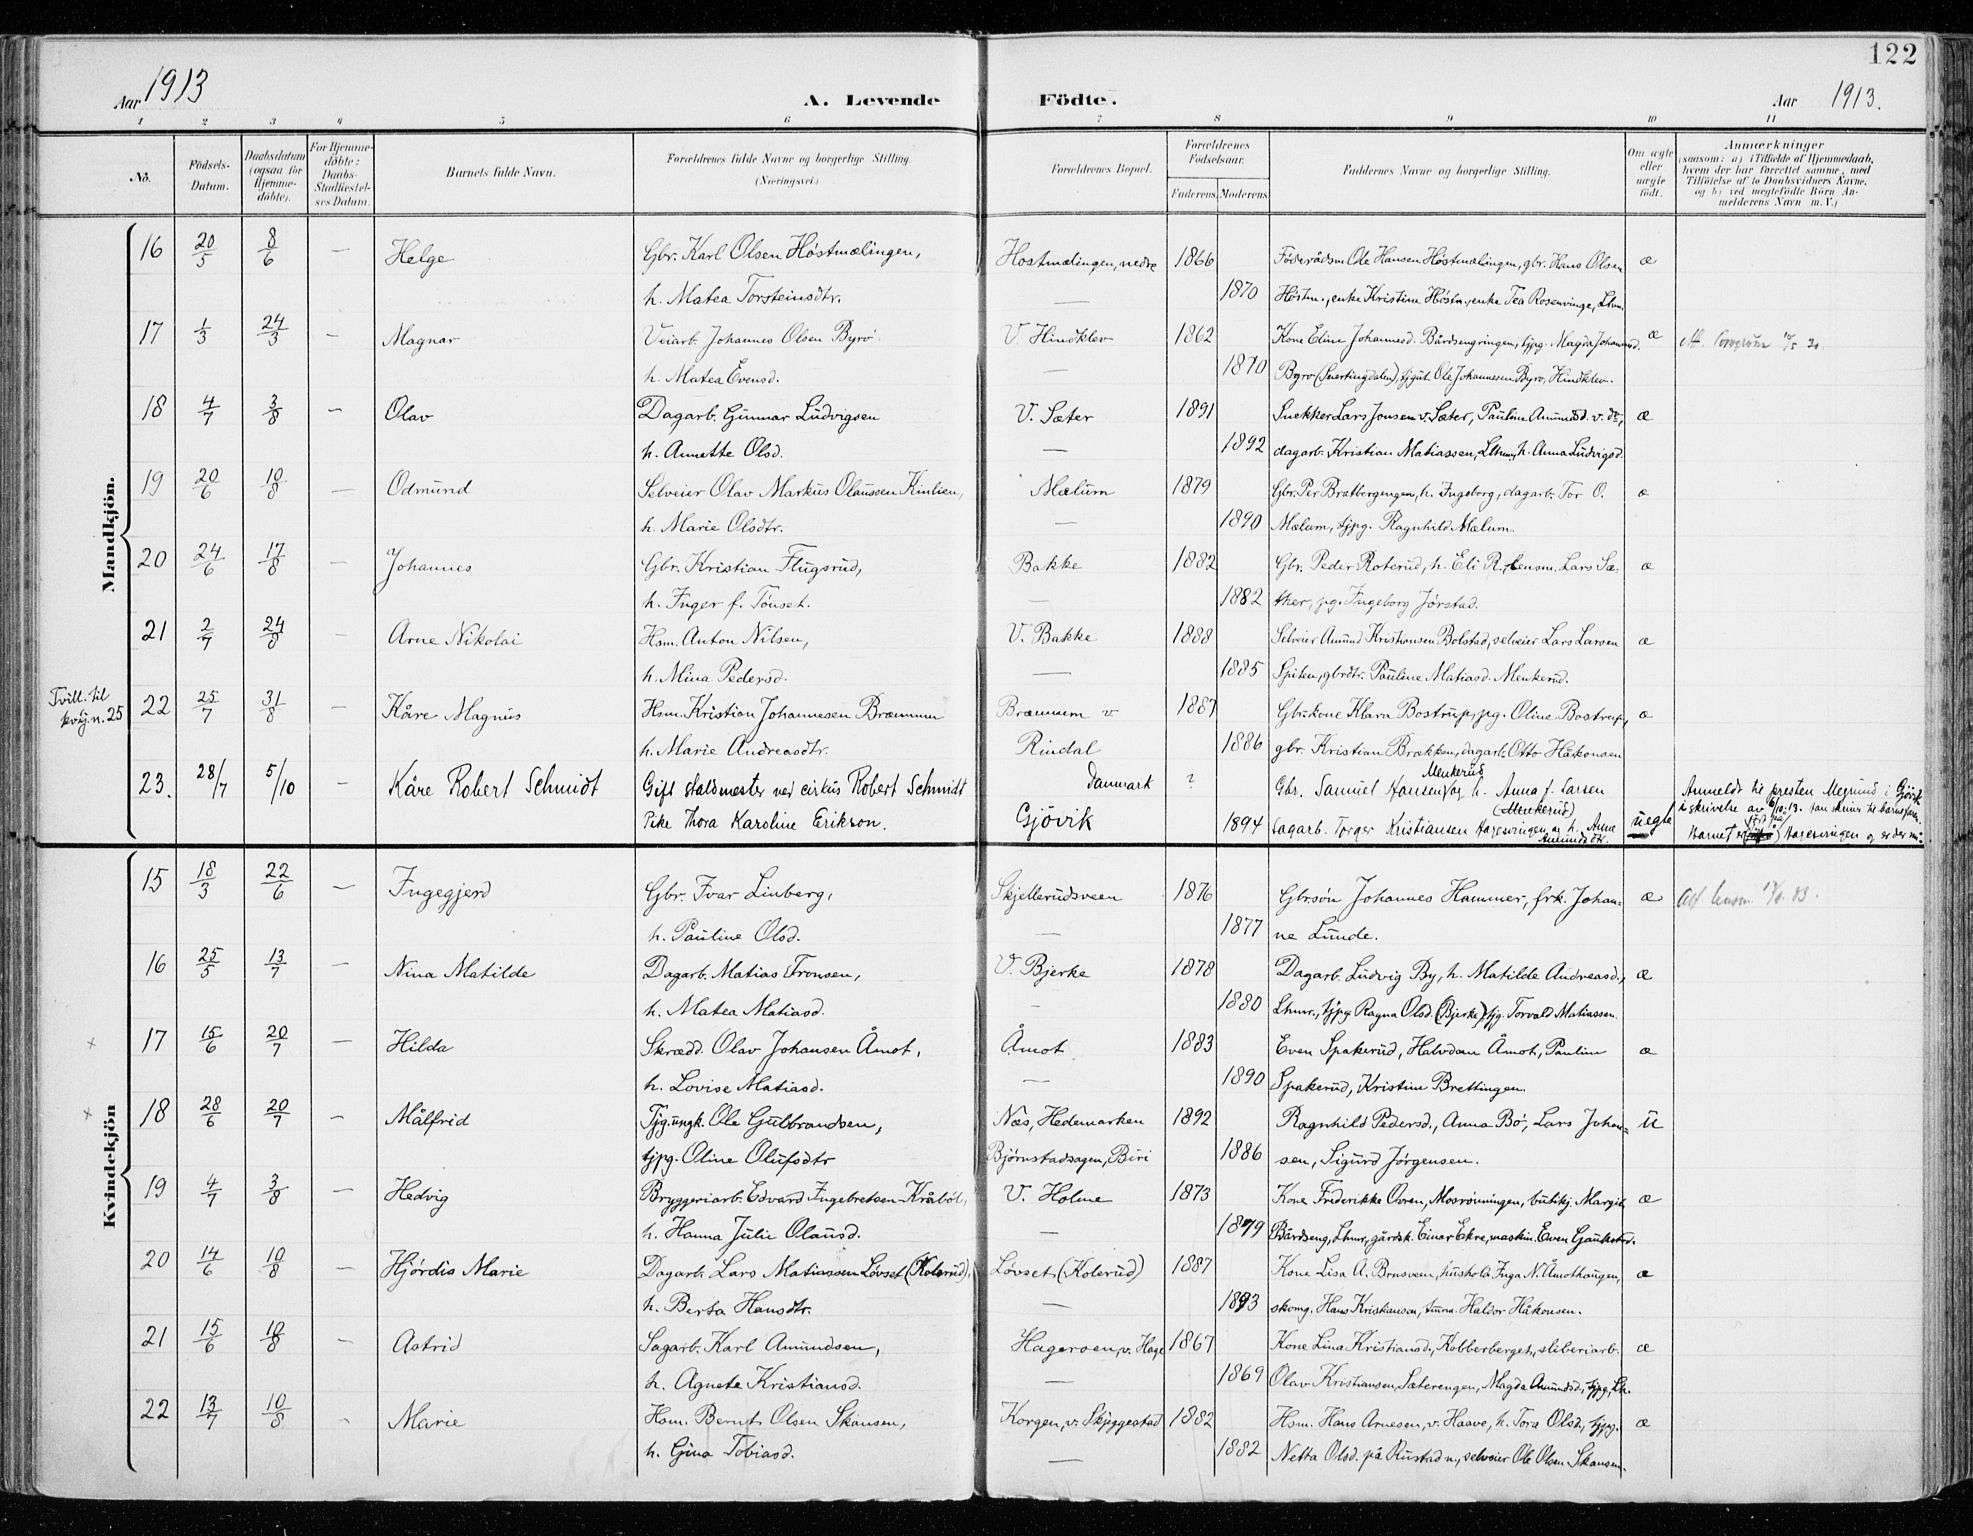 122
Aar 1913
A. Levende Födte.
Aar 1913.
1 2 3 4 5 6 7 8 9 10 11
No.
Födsels-Datum.
Daabsdatum (ogsaa for Hjemme-döbte).
For Hjemme-döbte: Daabs-Stadfæstel-ses Datum.
Barnets fulde Navn.
Forældrenes fulde Navne og borgerlige Stilling. (Næringsvei.)
Forældrenes Bopæl.
Forældrenes Födselsaar.
Faderens. Moderens.
Faddernes Navne og borgerlige Stilling.
Om ægte eller uægte födt.
Anmærkninger (saasom: a) i Tilfælde af Hjemmedaab, hvem der har forrettet samme, med Tilföielse af to Daabsvidners Navne, og b) ved uegtefödte Börn An-melderens Navn m. V.)
Mandkjön.
16 20/5 8/6 — Helge Gbr. Karl Olsen Høstmælingen, Hostmælingen, nedre 1866 Föderådsm Ole Hansen Høstmælingen, gbr. Hans Olsen æ
h. Matea Torsteinsdtr. — 1870 Høstm., enke Kristine Høstm., enke Tea Rosenvinge, Lhmr.
17 1/3 24/3 — Magnar Veiarb. Johannes Olsen Byrø V. Hindklev 1862 Kone Eline Johannesd. Bårdsengringen, tjpg. Magda Johannesd. æ
h. Matea Evensd. — 1870 Byrø (Snertingdalen), tjgut Ole Johannesen Byro, Hindklev.
18 4/7 3/8 — Olav Dagarb. Gunnar Ludvigsen V. Sæter 1891 Snekker Lars Jonsen v. Sæter, Pauline Amundsd. v. do, æ
h. Annette Olsd. — 1892 dagarb. Kristian Matiassen, Lhmr, h. Anna Ludvigsd.
19 20/6 10/8 — Odmund Selveier Olav Markus Olaussen Kinlien, Mælum 1879 Gbr. Per Bratbergengen, h. Ingeborg, dagarb. Tor O. æ
h. Marie Olsdtr. — 1890 Mælum, tjpg. Ragnhild Mælum.
20 24/6 17/8 — Johannes Gbr. Kristian Flugsrud, Bakke 1882 Gbr. Peder Roterud, h. Eli R., lensm. Lars Sæ- æ
h. Inger f. Tønset. — 1882 ther, pg. Ingeborg Jørstad.
21 2/7 24/8 — Arne Nikolai Hsm. Anton Nilsen, V. Bakke 1888 Selveier Amund Kristiansen Bolstad, selveier Lars Larsen æ
h. Mina Pedersd. — 1885 Spiten, gbrdtr. Pauline Matiasd. Menkerud.
Tvill. til
kvkj. n. 25
22 25/7 31/8 — Kåre Magnus Hsm. Kristian Johannesen Bræmmum Bræmmum v 1887 Gbr.kone Klara Bostrup, pg. Oline Bostrup, æ
h. Marie Andreasdtr. Rindal 1886 gbr. Kristian Brækken, dagarb. Otto Håkonsen
23. 28/7 5/10 — Kåre Robert Schmidt Gift staldmester ved cirkus Robert Schmidt Danmark ? Gbr. Samuel Hansen Menkerud og h. Anna f. Larsen
Pike Thora Karoline Erikson. Gjøvik 1894 (Menkerud) Sagarb. Torger Kristiansen Haresvingen og h. Anne Amundsdtr. uegte
Anmeldt til presten Megrund i Gjøvik
i skrivelse av 6/10.13.
Kvindekjön
15 18/3 22/6 — Ingegjerd Gbr. Ivar Linberg, Skjellerudsveen 1876 Gbrsøn Johannes Hammer, frk. Johan- æ
h. Pauline Olsd. — 1877 ne Lunde.
16 25/5 13/7 — Nina Matilde Dagarb. Matias Tronsen, V. Bjerke 1878 Dagarb. Ludvig By, h. Matilde Andreasd., æ
h. Matea Matiasd. — 1880 Lhmr., tjpg. Ragna Olsd. (Bjerke), tjg. Torvald Matiassen.
17 15/6 20/7 — Hilda Skrædd. Olav Johansen Åmot, Åmot 1883 Even Spakerud, Halvdan Åmot, Pauline æ
h. Lovise Matiasd. — 1890 Spakerud, Kristine Brettingen
18 28/6 20/7 — Målfrid Tjg.ungk. Ole Gulbrandsen, Næs, Hedemarken 1892 Ragnhild Pedersd., Anna Bø, Lars Johan- u
tjpg. Oline Olufsdtr Bjørnstadsagen, Biri 1886 sen, Sigurd Jørgensen.
19 4/7 3/8 — Hedvig Bryggeriarb. Edvard Ingebretsen Kråbøl, V. Holme 1873 Kone Frederikke Owren, Mosrønningen, butikj. Margit æ
h. Hanna Julie Olausd. — 1879 Bårdseng, Lhmr, gårdsk. Einar Ekre, maskin. Even Gaukstad.
20 14/6 10/8 — Hjördis Marie Dagarb. Lars Matiassen Lövset (Kolerud), Lövset (Kolerud) 1887 Kone Lisa A. Brusveen, hushold. Inga N. Åmothaugen, æ
h. Berta Hansdtr. — 1893 skomg. Hans Kristiansen, tmrm. Haldor Håkonsen.
21 15/6 10/8 — Astrid Sagarb. Karl Amundsen, Hageroen, v. Hage 1867 Kone Lina Kristiansd., Kobberberget, sliberiarb. æ
h. Agnete Kristiansd. — 1869 Olav Kristiansen, Sæterengen, Magda Amundsd., tjpg, Lh.
22 13/7 10/8 - Marie Hsm. Bernt Olsen Skansen, Korgen, v. Skjeggestad 1882 Hsm. Hans Arnesen, v. Haave, h. Tora Olsd., tjpg. æ
h. Gina Tobiasd. — 1882 Netta Olsd. på Rustad n., selveier Ole Olsen Skansen.